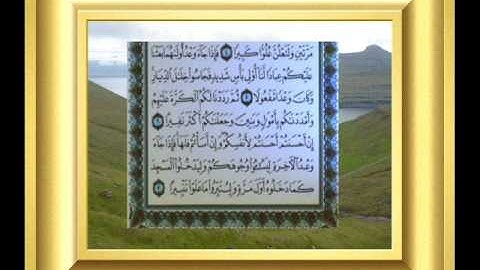 مَرَّتَيْنِ وَلَتَعْلُنَّ عُلُوًّا كَبِيرًا ۝ فَإِذَا جَآءَ وَعْدُ أُولَىٰهُمَا بَعَثْنَا
عَلَيْكُمْ عِبَادًا لَّنَآ أُو۟لِى بَأْسٍ شَدِيدٍ فَجَاسُوا۟ خِلَـٰلَ ٱلدِّيَارِ
وَكَانَ وَعْدًا مَّفْعُولًا ۝ ثُمَّ رَدَدْنَا لَكُمُ ٱلْكَرَّةَ عَلَيْهِمْ
وَأَمْدَدْنَـٰكُم بِأَمْوَٰلٍ وَبَنِينَ وَجَعَلْنَـٰكُمْ أَكْثَرَ نَفِيرًا ۝
إِنْ أَحْسَنتُمْ أَحْسَنتُمْ لِأَنفُسِكُمْ وَإِنْ أَسَأْتُمْ فَلَهَا فَإِذَا جَآءَ
وَعْدُ ٱلْـَٔاخِرَةِ لِيَسُـۥٓـُٔوا۟ وُجُوهَكُمْ وَلِيَدْخُلُوا۟ ٱلْمَسْجِدَ
كَمَا دَخَلُوهُ أَوَّلَ مَرَّةٍ وَلِيُتَبِّرُوا۟ مَا عَلَوْا۟ تَتْبِيرًا ۝